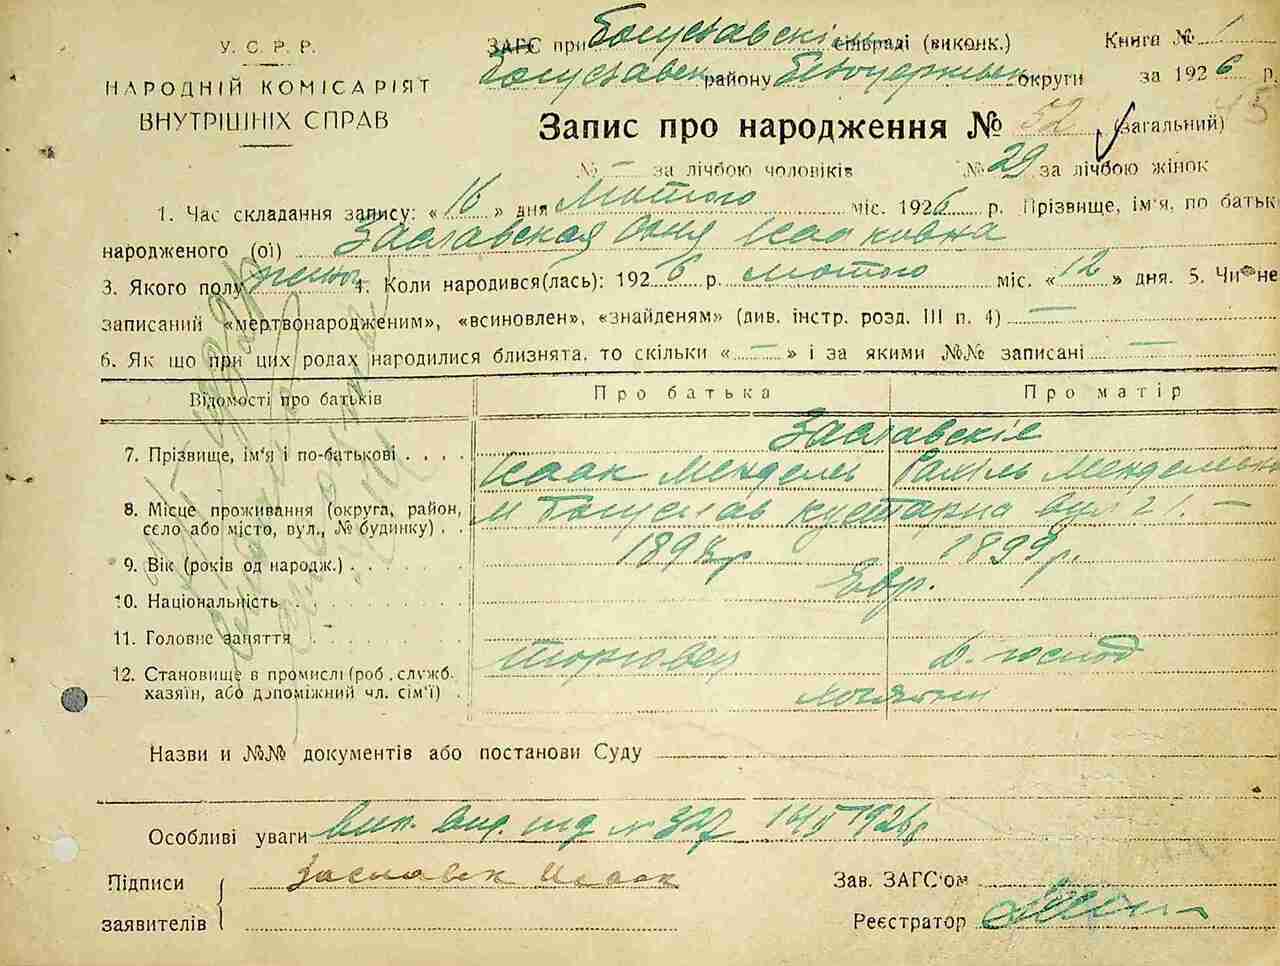 У. С. Р. Р.
НАРОДНІЙ КОМІСАРІЯТ
ВНУТРІШНІХ СПРАВ
ЗАГС при Богуславскім сільраді (виконк.) Книга № 1
Богуславск району Білоцерківськ округи за 1926 р.
Запис про народження № 52 (загальний)
№ — за лічбою чоловіків № 29 за лічбою жінок
1. Час складання запису: «16» дня Лютого міс. 1926 р. Прізвище, ім'я, по батьк
народженого (ої) Заславская Исааковна
3. Якого полу жіноч 4. Коли народився(лась): 1926 р. лютого міс. «12» дня. 5. Чи не
записаний «мертвонародженим», «всиновлен», «знайденям» (див. інстр. розд. III п. 4) —
6. Як що при цих родах народилися близнята, то скільки «—» і за якими №№ записані —
Відомості про батьків Про батька Про матір
7. Прізвище, ім'я і по-батькові . . . . Заславскіе
Исаак Менделев Рахіль Мендельевн
8. Місце проживання (округа, район, село або місто, вул., № будинку) . . м Богуслав кустарна вул 21. —
9. Вік (років од народж.) . . . . . . 1899р.
10. Національність . . . . . . Евр.
11. Головне заняття . . . . . .
12. Становище в промислі (роб., служб. хазяїн, або допоміжний чл. сім'ї) . торговец д. господ
Назви и №№ документів або постанови Суду
Особливі уваги Вип. вид. під № 327 1926р
Підписи Заславск Исаак Зав. ЗАГС'ом
заявителів Реєстратор